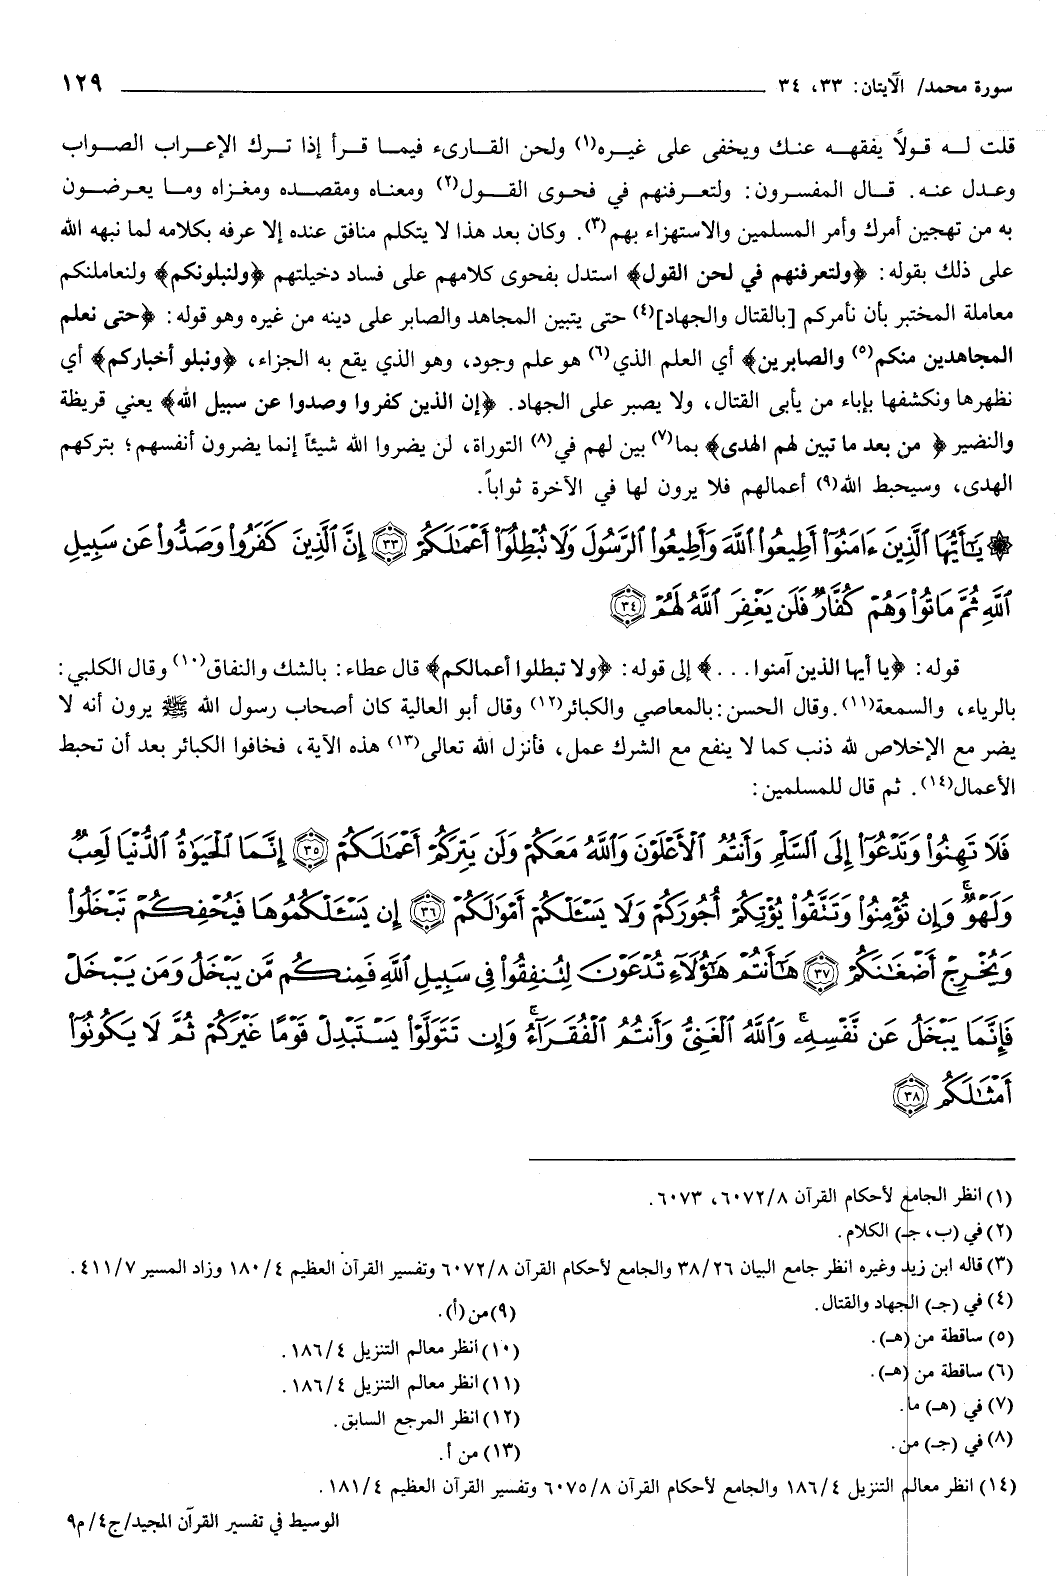 سورة محمد/ الآيتان: ٣٣، ٣٤ ١٢٩
قلت لـه قـولاً يفقهـه عنـك ويخفى على غيـره(١) ولحن القـارىء فيمـا قـرأ إذا تـرك الإعـراب الصـواب
وعـدل عنـه. قـال المفسـرون: ولتعـرفنهم في فحوى القـول(٢) ومعنـاه ومقصـده ومغـزاه ومـا يعـرضـون
به من تهجين أمرك وأمر المسلمين والاستهزاء بهم(٣). وكان بعد هذا لا يتكلم منافق عنده إلا عرفه بكلامه لما نبهه الله
على ذلك بقوله: ﴿ولتعرفنهم في لحن القول﴾ استدل بفحوى كلامهم على فساد دخيلتهم ﴿ولنبلونكم﴾ ولنعاملنكم
معاملة المختبر بأن نأمركم [بالقتال والجهاد](٤) حتى يتبين المجاهد والصابر على دينه من غيره وهو قوله: ﴿حتى نعلم
المجاهدين منكم(٥) والصابرين﴾ أي العلم الذي(٦) هو علم وجود، وهو الذي يقع به الجزاء، ﴿ونبلو أخباركم﴾ أي
نظهرها ونكشفها بإباء من يأبى القتال، ولا يصبر على الجهاد. ﴿إن الذين كفروا وصدوا عن سبيل الله﴾ يعني قريظة
والنضير ﴿ من بعد ما تبين لهم الهدى﴾ بما(٧) بين لهم في(٨) التوراة، لن يضروا الله شيئاً إنما يضرون أنفسهم؛ بتركهم
الهدى، وسيحبط الله(٩) أعمالهم فلا يرون لها في الآخرة ثواباً.
۞ يَٰٓأَيُّهَا ٱلَّذِينَ ءَامَنُوٓاْ أَطِيعُواْ ٱللَّهَ وَأَطِيعُواْ ٱلرَّسُولَ وَلَا تُبْطِلُوٓاْ أَعْمَٰلَكُمْ ٣٣ إِنَّ ٱلَّذِينَ كَفَرُواْ وَصَدُّواْ عَن سَبِيلِ
ٱللَّهِ ثُمَّ مَاتُواْ وَهُمْ كُفَّارٌ فَلَن يَغْفِرَ ٱللَّهُ لَهُمْ ٣٤
قوله: ﴿يا أيها الذين آمنوا...﴾ إلى قوله: ﴿ولا تبطلوا أعمالكم﴾ قال عطاء: بالشك والنفاق(١٠) وقال الكلبي:
بالرياء، والسمعة(١١). وقال الحسن: بالمعاصي والكبائر(١٢) وقال أبو العالية كان أصحاب رسول الله ﷺ يرون أنه لا
يضر مع الإخلاص لله ذنب كما لا ينفع مع الشرك عمل، فأنزل الله تعالى(١٣) هذه الآية، فخافوا الكبائر بعد أن تحبط
الأعمال(١٤). ثم قال للمسلمين:
فَلَا تَهِنُواْ وَتَدْعُوٓاْ إِلَى ٱلسَّلْمِ وَأَنتُمُ ٱلْأَعْلَوْنَ وَٱللَّهُ مَعَكُمْ وَلَن يَتِرَكُمْ أَعْمَٰلَكُمْ ٣٥ إِنَّمَا ٱلْحَيَوٰةُ ٱلدُّنْيَا لَعِبٌ
وَلَهْوٌ ۚ وَإِن تُؤْمِنُواْ وَتَتَّقُواْ يُؤْتِكُمْ أُجُورَكُمْ وَلَا يَسْـَٔلْكُمْ أَمْوَٰلَكُمْ ٣٦ إِن يَسْـَٔلْكُمُوهَا فَيُحْفِكُمْ تَبْخَلُواْ
وَيُخْرِجْ أَضْغَٰنَكُمْ ٣٧ هَٰٓأَنتُمْ هَٰٓؤُلَآءِ تُدْعَوْنَ لِتُنفِقُواْ فِى سَبِيلِ ٱللَّهِ فَمِنكُم مَّن يَبْخَلُ وَمَن يَبْخَلْ
فَإِنَّمَا يَبْخَلُ عَن نَّفْسِهِۦ ۚ وَٱللَّهُ ٱلْغَنِىُّ وَأَنتُمُ ٱلْفُقَرَآءُ ۚ وَإِن تَتَوَلَّوْاْ يَسْتَبْدِلْ قَوْمًا غَيْرَكُمْ ثُمَّ لَا يَكُونُوٓاْ
أَمْثَٰلَكُم ٣٨
(١) انظر الجامع لأحكام القرآن ٦٠٧٢/٨، ٦٠٧٣.
(٢) في (ب، جـ) الكلام.
(٣) قاله ابن زيد وغيره انظر جامع البيان ٣٨/٢٦ والجامع لأحكام القرآن ٦٠٧٢/٨ وتفسير القرآن العظيم ١٨٠/٤ وزاد المسير ٤١١/٧.
(٤) في (جـ) الجهاد والقتال.
(٥) ساقطة من (هـ).
(٦) ساقطة من (هـ).
(٧) في (هـ) ما.
(٨) في (جـ) من.
(٩) من (أ).
(١٠) انظر معالم التنزيل ١٨٦/٤.
(١١) انظر معالم التنزيل ١٨٦/٤.
(١٢) انظر المرجع السابق.
(١٣) من أ.
(١٤) انظر معالم التنزيل ١٨٦/٤ والجامع لأحكام القرآن ٦٠٧٥/٨ وتفسير القرآن العظيم ١٨١/٤.
الوسيط في تفسير القرآن المجيد/ج٤/م٩